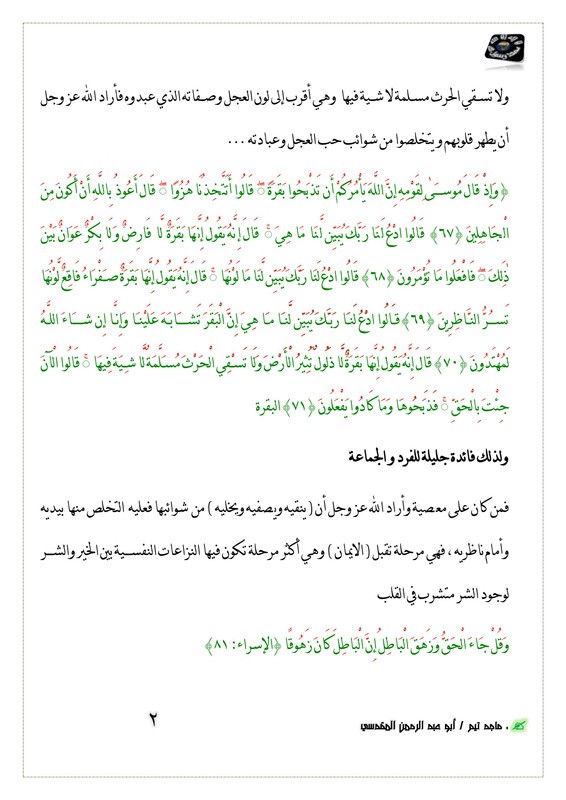 ولا تسقي الحرث مسلمة لا شية فيها وهي أقرب إلى لون العجل وصفاته الذي عبدوه فأراد الله عز وجل
أن يطهر قلوبهم ويتخلصوا من شوائب حب العجل وعبادته ...
﴿ وَإِذْ قَالَ مُوسَىٰ لِقَوْمِهِ إِنَّ اللَّهَ يَأْمُرُكُمْ أَن تَذْبَحُوا بَقَرَةً ۖ قَالُوا أَتَتَّخِذُنَا هُزُوًا ۖ قَالَ أَعُوذُ بِاللَّهِ أَنْ أَكُونَ مِنَ
الْجَاهِلِينَ ﴿٦٧﴾ قَالُوا ادْعُ لَنَا رَبَّكَ يُبَيِّن لَّنَا مَا هِيَ ۚ قَالَ إِنَّهُ يَقُولُ إِنَّهَا بَقَرَةٌ لَّا فَارِضٌ وَلَا بِكْرٌ عَوَانٌ بَيْنَ
ذَٰلِكَ ۖ فَافْعَلُوا مَا تُؤْمَرُونَ ﴿٦٨﴾ قَالُوا ادْعُ لَنَا رَبَّكَ يُبَيِّن لَّنَا مَا لَوْنُهَا ۚ قَالَ إِنَّهُ يَقُولُ إِنَّهَا بَقَرَةٌ صَفْرَاءُ فَاقِعٌ لَّوْنُهَا
تَسُرُّ النَّاظِرِينَ ﴿٦٩﴾ قَالُوا ادْعُ لَنَا رَبَّكَ يُبَيِّن لَّنَا مَا هِيَ إِنَّ الْبَقَرَ تَشَابَهَ عَلَيْنَا وَإِنَّا إِن شَاءَ اللَّهُ
لَمُهْتَدُونَ ﴿٧٠﴾ قَالَ إِنَّهُ يَقُولُ إِنَّهَا بَقَرَةٌ لَّا ذَلُولٌ تُثِيرُ الْأَرْضَ وَلَا تَسْقِي الْحَرْثَ مُسَلَّمَةٌ لَّا شِيَةَ فِيهَا ۚ قَالُوا الْآنَ
جِئْتَ بِالْحَقِّ ۚ فَذَبَحُوهَا وَمَا كَادُوا يَفْعَلُونَ ﴿٧١﴾ البقرة
ولذلك فائدة جليلة للفرد والجماعة
فمن كان على معصية وأراد الله عز وجل أن ( ينقيه ويصفيه ويخليه ) من شوائبها فعليه التخلص منها بيديه
وأمام ناظريه ، فهي مرحلة تقبل ( الايمان ) وهي أكثر مرحلة تكون فيها النزاعات النفسية بين الخير والشر
لوجود الشر متشرب في القلب
وَقُلْ جَاءَ الْحَقُّ وَزَهَقَ الْبَاطِلُ إِنَّ الْبَاطِلَ كَانَ زَهُوقًا ﴿الإسراء: ٨١﴾
. ماجد تيم / أبو عبد الرحمن المقدسي
٢